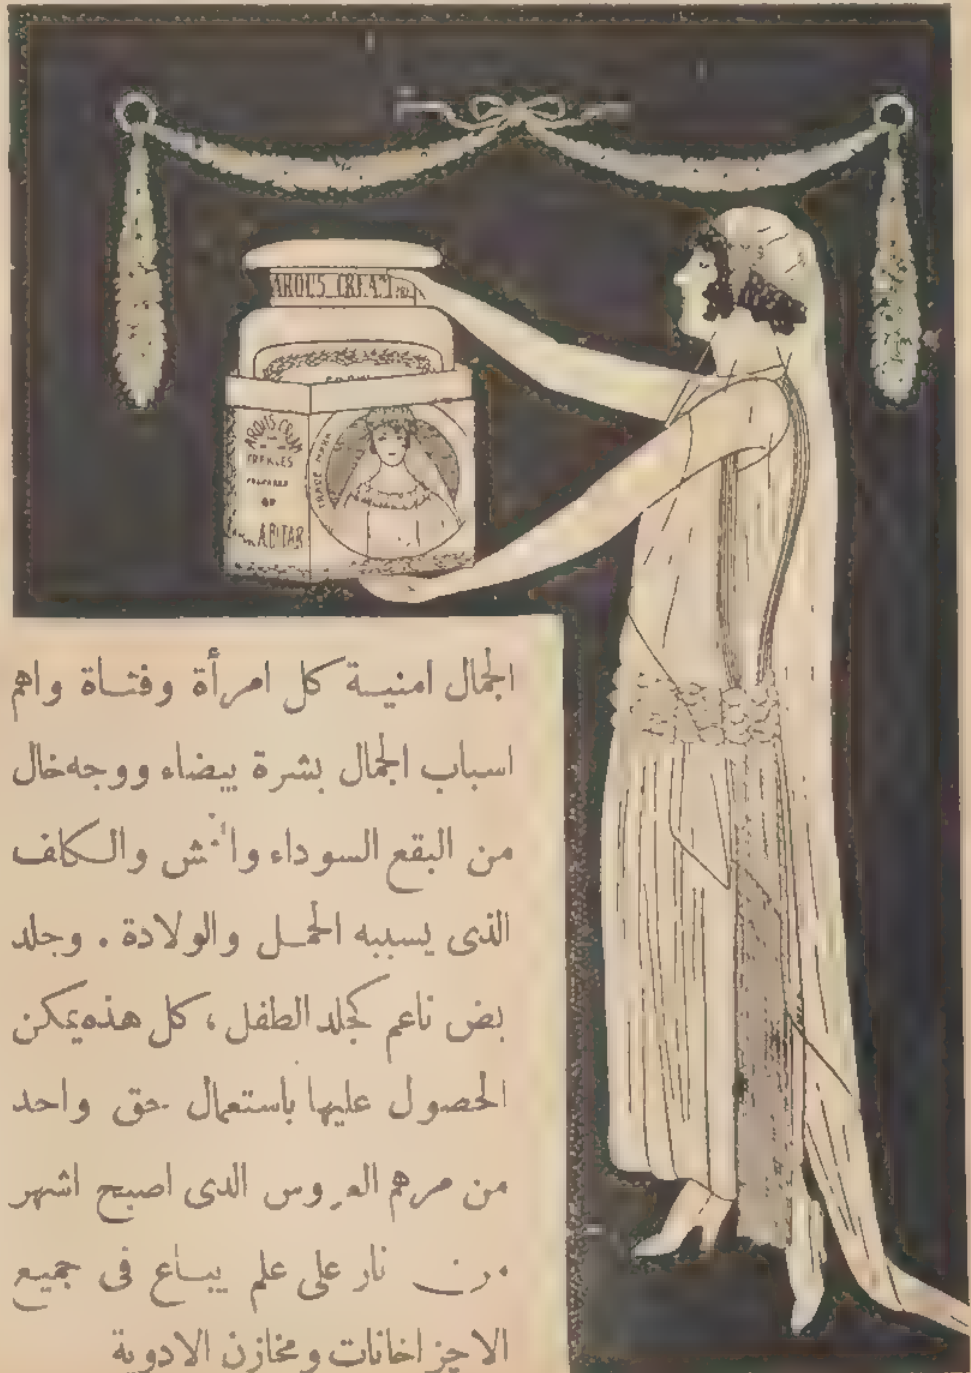 AROUS CREAM
AROUS CREAM
FRECKLES
PREPARED
BY
ABITAR
TRADE MARK
الجمال امنية كل امرأة وفتاة واهم
اسباب الجمال بشرة بيضاء ووجه خال
من البقع السوداء والكلف
الذى يسببه الحمل والولادة . وجلد
بض ناعم كجلد الطفل ، كل هذه يمكن
الحصول عليها باستعمال حق واحد
من مرهم العروس الذى اصبح اشهر
من نار على علم يباع فى جميع
الاجزاخانات ومخازن الادوية